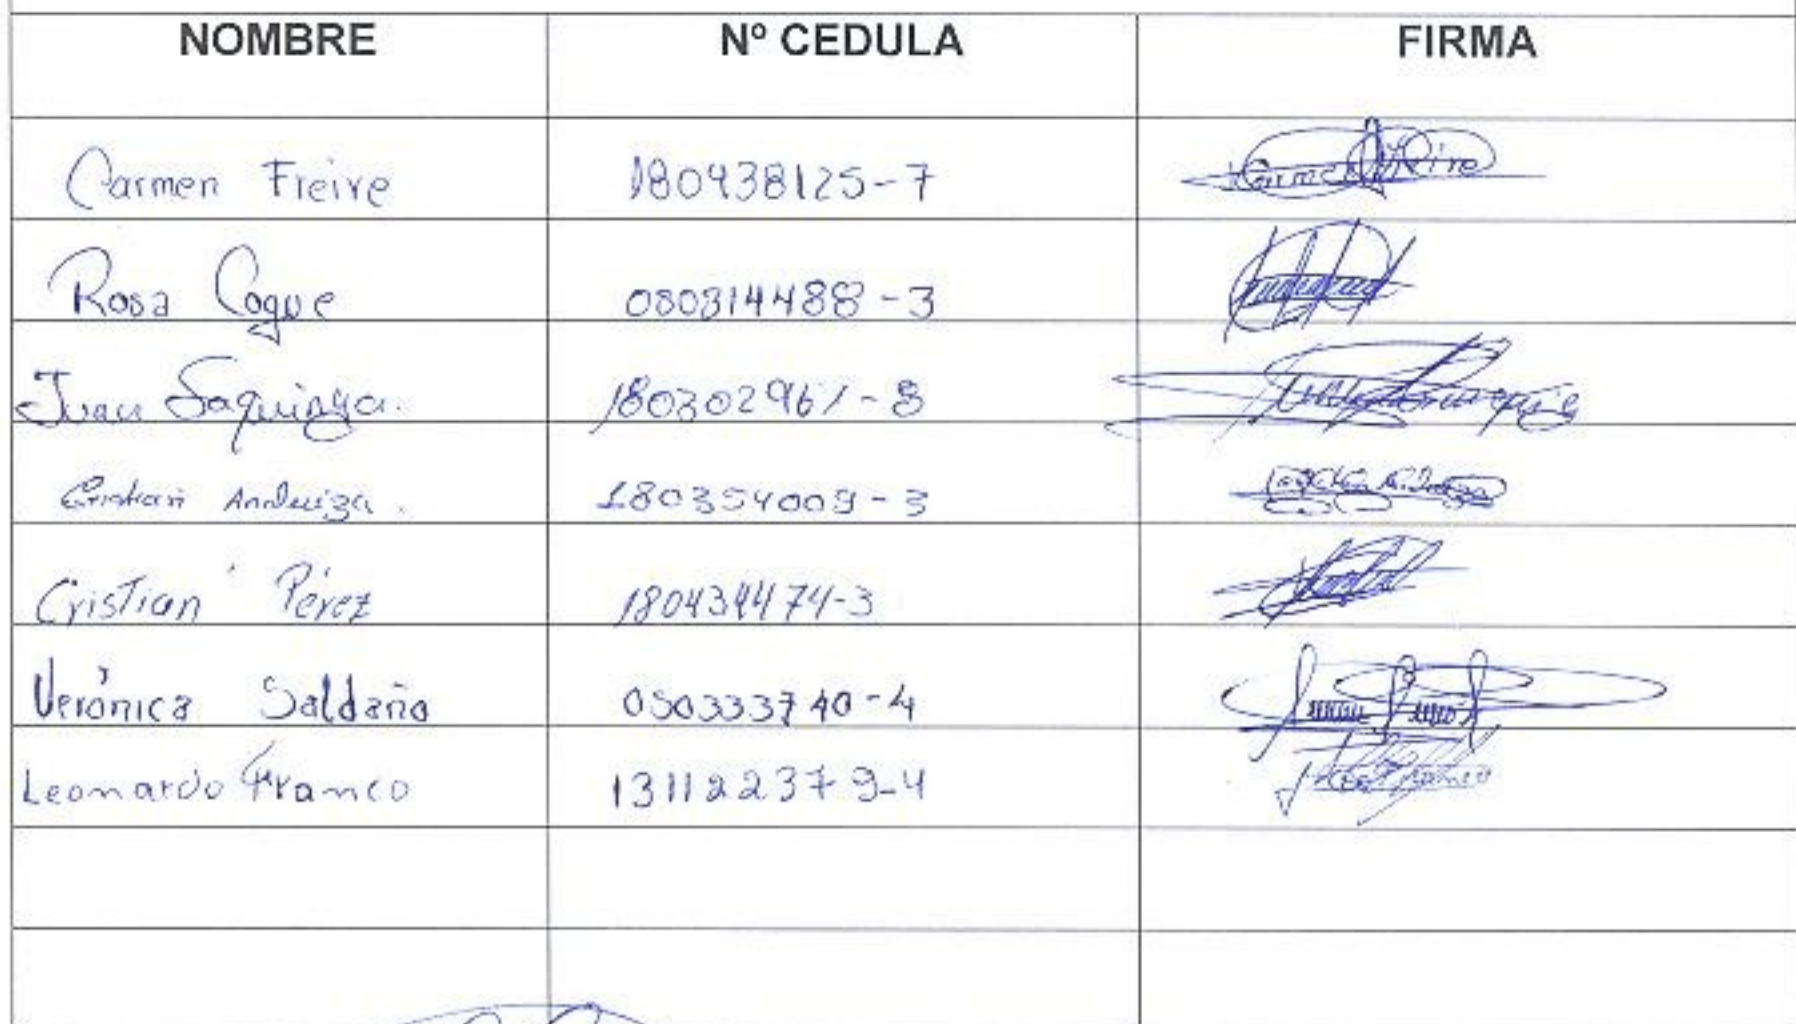 NOMBRE Nº CEDULA FIRMA
Carmen Freire 180438125-7
Rosa Coque 080314488-3
Juan Saquinga. 180302961-8
Cristian Andeiza. 180354009-3
Cristian Pérez 180434474-3
Verónica Saldaño 050333740-4
Leonardo Franco 131122379-4